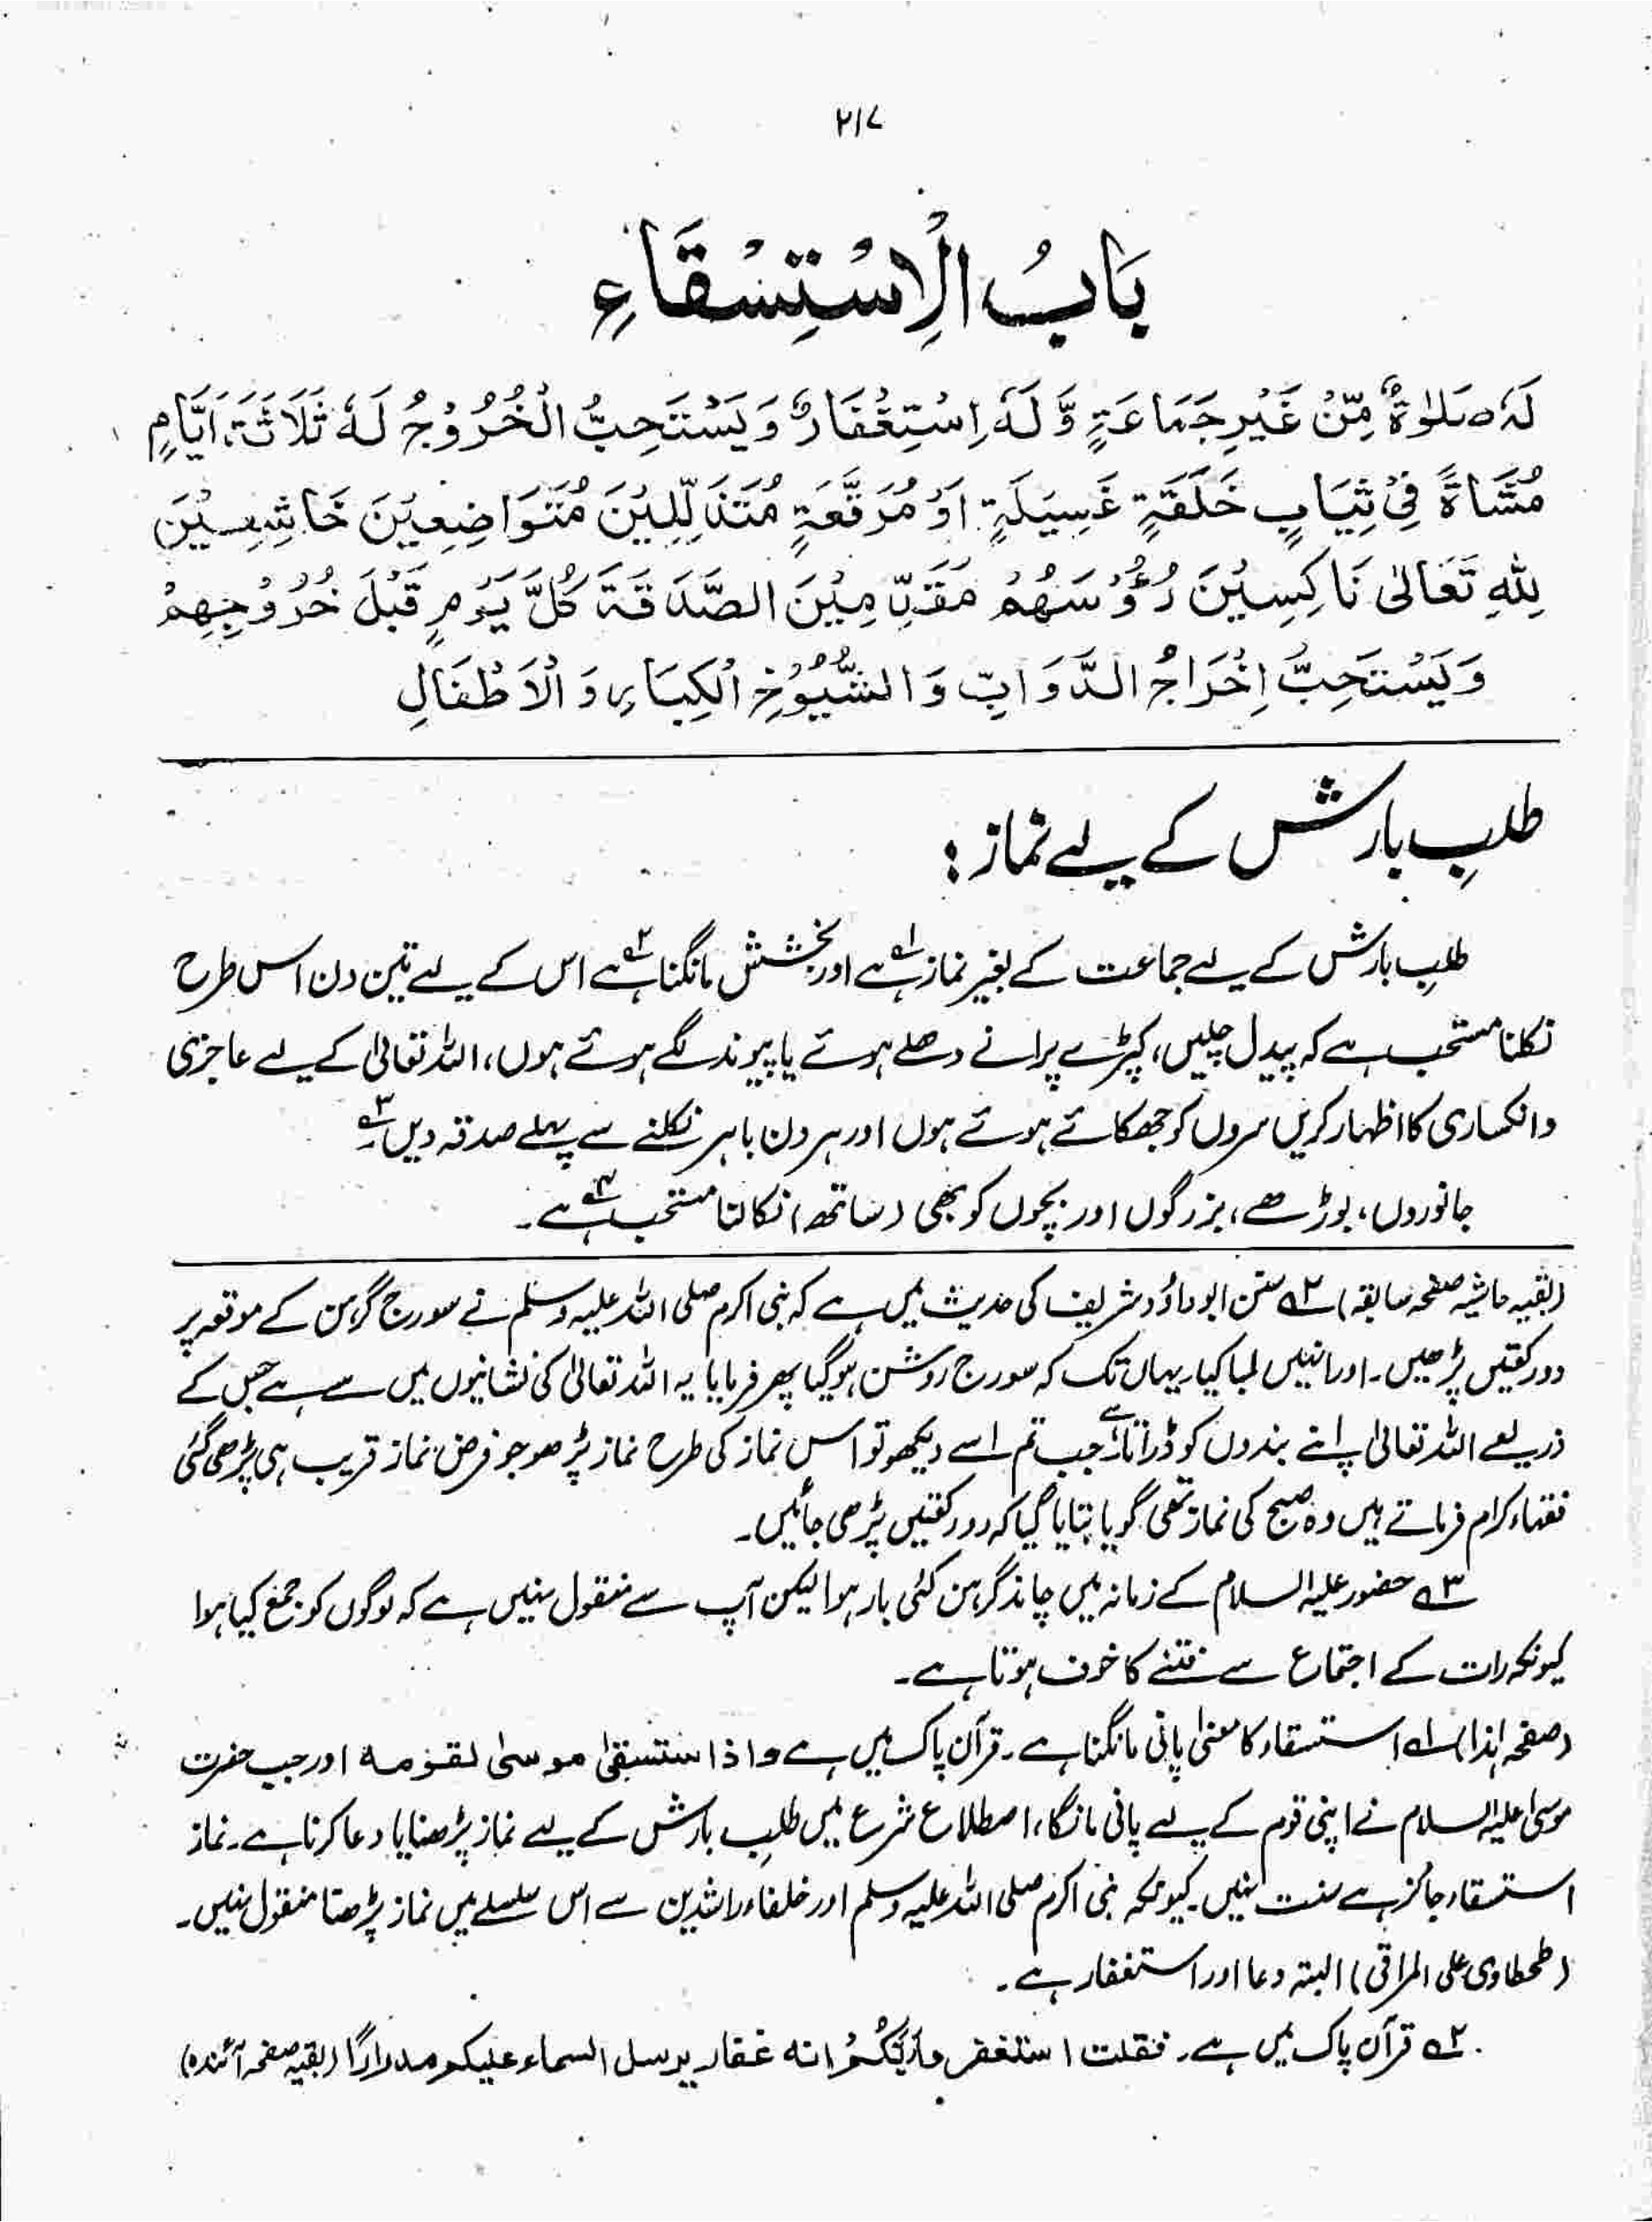 ۲۱۷
بَابُ الْاِسْتِسْقَاءِ
لَهٗ صَلٰوةٌ مِّنْ غَيْرِ جَمَاعَةٍ وَّلَهٗ اِسْتِغْفَارٌ وَيَسْتَحِبُّ الْخُرُوْجُ لَهٗ ثَلَاثَةَ اَيَّامٍ
مُشَاةً فِيْ ثِيَابٍ خَلَقَةٍ غَسِيْلَةٍ اَوْ مُرَقَّعَةٍ مُتَذَلِّلِيْنَ مُتَوَاضِعِيْنَ خَاشِعِيْنَ
لِلّٰهِ تَعَالٰى نَاكِسِيْنَ رُؤُوْسَهُمْ مُقَدِّمِيْنَ الصَّدَقَةَ كُلَّ يَوْمٍ قَبْلَ خُرُوْجِهِمْ
وَيَسْتَحِبُّ اِخْرَاجُ الدَّوَابِّ وَالشُّيُوْخِ الْكِبَارِ وَالْاَطْفَالِ
طلبِ بارش کے لیے نماز :
طلبِ بارش کے لیے جماعت کے بغیر نماز ہے۱ اور بخشش مانگنا ہے۲ اس کے لیے تین دن اس طرح
نکلنا مستحب ہے کہ پیدل چلیں، کپڑے پرانے دھلے ہوئے یا پیوند لگے ہوئے ہوں، اللہ تعالیٰ کے لیے عاجزی
و انکساری کا اظہار کریں سروں کو جھکائے ہوئے ہوں اور ہر دن باہر نکلنے سے پہلے صدقہ دیں۳۔
جانوروں، بوڑھے، بزرگوں اور بچوں کو بھی (ساتھ) نکالنا مستحب ہے۴۔
(بقیہ حاشیہ صفحہ سابقہ) ۲؎ سنن ابوداؤد شریف کی حدیث میں ہے کہ نبی اکرم صلی اللہ علیہ وسلم نے سورج گرہن کے موقعہ پر
دو رکعتیں پڑھیں۔ اور انہیں لمبا کیا۔ یہاں تک کہ سورج روشن ہو گیا پھر فرمایا یہ اللہ تعالیٰ کی نشانیوں میں سے ہے جس کے
ذریعے اللہ تعالیٰ اپنے بندوں کو ڈراتا ہے جب تم اسے دیکھو تو اس نماز کی طرح نماز پڑھو جو فرض نماز قریب ہی پڑھی گئی
فقہاء کرام فرماتے ہیں وہ صبح کی نماز تھی گویا بتایا گیا کہ دو رکعتیں پڑھی جائیں۔
۳؎ حضور علیہ السلام کے زمانہ میں چاند گرہن کئی بار ہوا لیکن آپ سے منقول نہیں ہے کہ لوگوں کو جمع کیا ہوا
کیونکہ رات کے اجتماع سے فتنے کا خوف ہوتا ہے۔
(صفحہ ہذا) ۱؎ استسقاء کا معنٰی پانی مانگنا ہے۔ قرآن پاک میں ہے واذا ستسقیٰ موسیٰ لقومہ اور جب حضرت
موسیٰ علیہ السلام نے اپنی قوم کے لیے پانی مانگا، اصطلاع شرع میں طلبِ بارش کے لیے نماز پڑھنا یا دعا کرنا ہے۔ نماز
استسقاء جائز ہے سنت نہیں۔ کیونکہ نبی اکرم صلی اللہ علیہ وسلم اور خلفاء راشدین سے اس سلسلے میں نماز پڑھنا منقول نہیں۔
(طحطاوی علی المراقی) البتہ دعا اور استغفار ہے۔
۲؎ قرآن پاک میں ہے۔ فقلت استغفر وارَبَّكُمْ انہ غفار یرسل السماء علیکم مدرارًا (بقیہ صفحہ آئندہ)